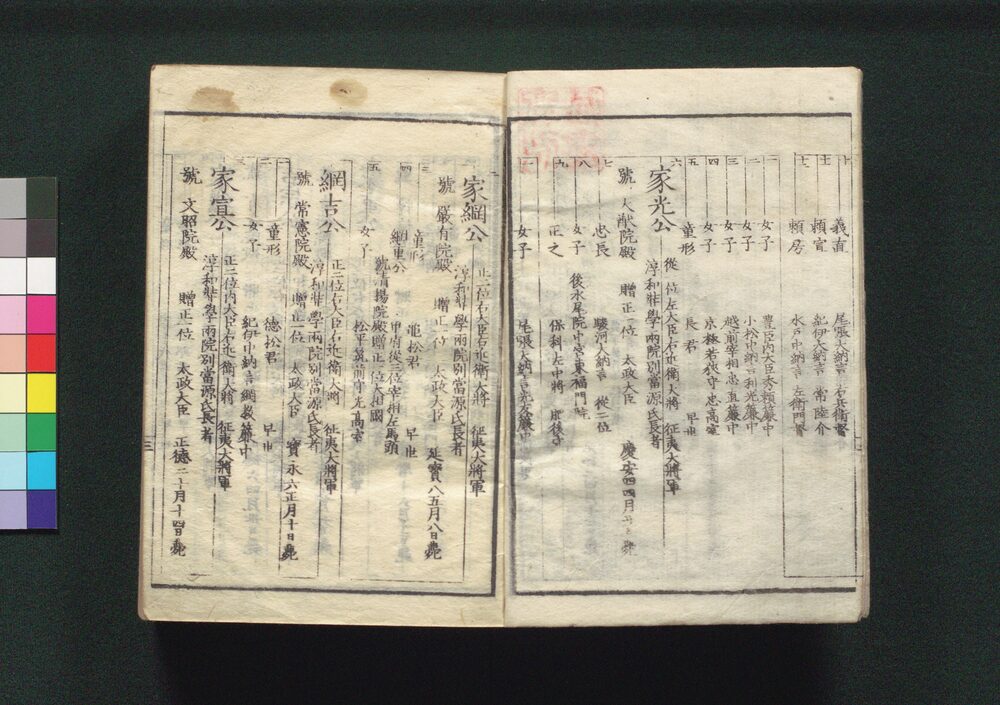 十 義直 尾張大納言 右兵衛督
十一 頼宣 紀伊大納言 常陸介
十二 頼房 水戸中納言 左衛門督
一 女子 豊臣内大臣秀頼簾中
二 女子 小松中納言利光簾中
三 女子 越前宰相忠直簾中
四 女子 京極若狭守忠高室
五 童形 長君 早世
六 家光公 従一位左大臣右近衛大将 征夷大将軍
淳和奨學両院別當源氏長者
號 大猷院殿 贈正一位 太政大臣 慶安四四月廿日薨
七 忠長 駿河大納言 從二位
八 女子 後水尾院中宮東福門院
九 正之 保科左中将 肥後守
一 女子 尾張大納言光友簾中
二 家綱公 正二位右大臣右近衛大将 征夷大将軍
淳和奨學両院別當源氏長者
號 嚴有院殿 贈正一位 太政大臣 延寶八五月八日薨
三 童形 亀松君 早世
四 綱重公 甲府従三位宰相左馬頭
號清揚院殿贈正一位大相國
五 女子 松平筑前守光高室
綱吉公 正二位右大臣右近衛大将 征夷大将軍
淳和奨學両院別當源氏長者
號 常憲院殿 贈正一位 太政大臣 寶永六正月十日薨
一 童形 徳松君 早世
二 女子 紀伊中納言綱教簾中
三 家宣公 正二位内大臣右近衛大将 征夷大将軍
淳和奨學両院別當源氏長者
號 文昭院殿 贈正一位 太政大臣 正徳二十月十四日薨
三